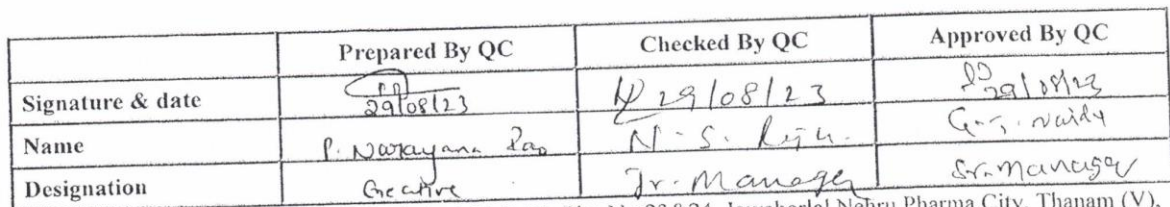 Prepared By QC Checked By QC Approved By QC
Signature & date 29/08/23 29/08/23 29/08/23
Name P. Narayana Rao N. S. Raju. G.S. Naidu
Designation Executive Jr. Manager Sr. Manager
23&24, Jawaharlal Nehru Pharma City, Thanam (V),